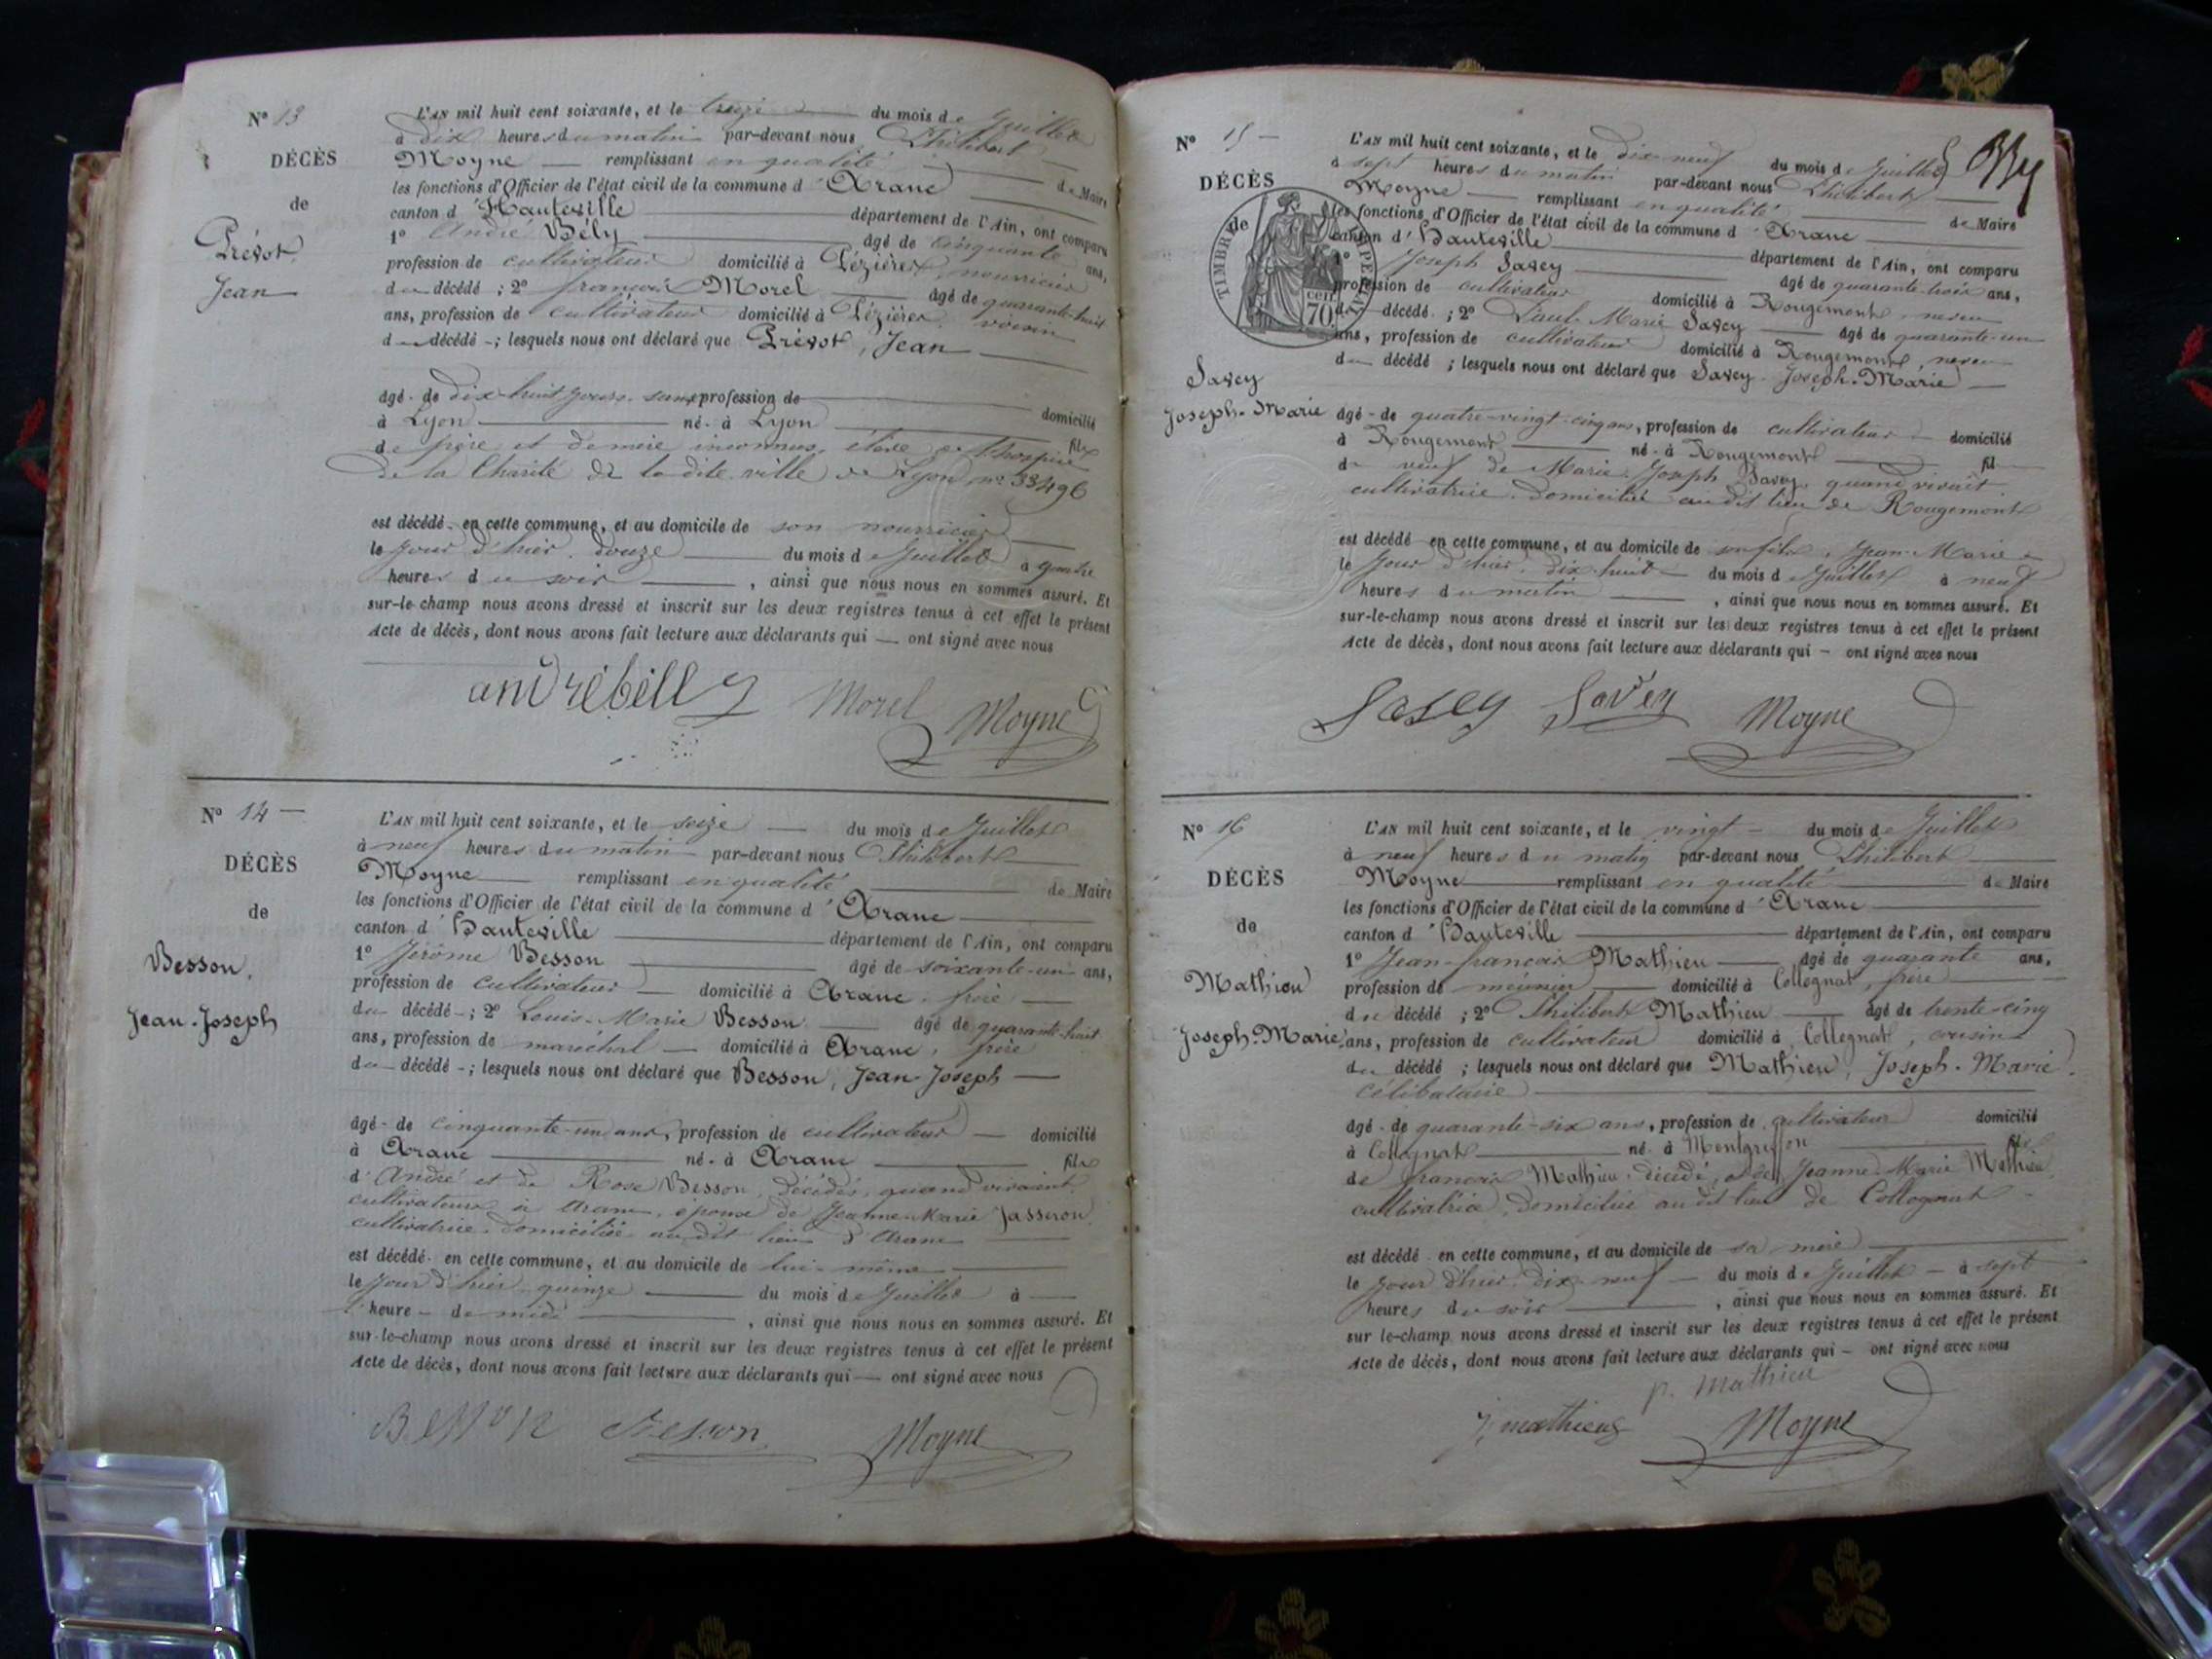 N° 13
DÉCÈS
de
Prévot
Jean
L'AN mil huit cent soixante, et le treize du mois de Juillet
à dix heures du matin par-devant nous Philibert
Moyne remplissant en qualité de Maire
les fonctions d'Officier de l'état civil de la commune d'Aranc
canton d'Hauteville département de l'Ain, ont comparu
1° André Bély âgé de cinquante ans,
profession de cultivateur domicilié à Lézières, nourricier
du décédé ; 2° françois Morel âgé de quarante-huit
ans, profession de cultivateur domicilié à Lézières voisin
du décédé ; lesquels nous ont déclaré que Prévot, Jean
âgé de dix huit jours, sans profession de domicilié
à Lyon né à Lyon fils
de père et de mère inconnus, élève de l'hospice
de la Charité de la dite ville de Lyon n° 33496
est décédé en cette commune, et au domicile de son nourricier
le jour d'hier douze du mois de Juillet à quatre
heures du soir, ainsi que nous nous en sommes assuré. Et
sur-le-champ nous avons dressé et inscrit sur les deux registres tenus à cet effet le présent
Acte de décès, dont nous avons fait lecture aux déclarants qui — ont signé avec nous
andrébélly Morel Moyne
N° 14
DÉCÈS
de
Besson,
Jean-Joseph
L'AN mil huit cent soixante, et le seize du mois de Juillet
à neuf heures du matin par-devant nous Philibert
Moyne remplissant en qualité de Maire
les fonctions d'Officier de l'état civil de la commune d'Aranc
canton d'Hauteville département de l'Ain, ont comparu
1° Jérôme Besson âgé de soixante-un ans,
profession de cultivateur domicilié à Aranc, frère
du décédé ; 2° Louis-Marie Besson âgé de quarante-huit
ans, profession de maréchal domicilié à Aranc, frère
du décédé ; lesquels nous ont déclaré que Besson, Jean-Joseph
âgé de cinquante-un ans, profession de cultivateur domicilié
à Aranc né à Aranc fils
d'André et de Rose Besson, décédés, quand vivaient
cultivateurs à Aranc, époux de Jeanne-Marie Jasseron
cultivatrice, domiciliée audit lieu d'Aranc
est décédé en cette commune, et au domicile de lui-même
le jour d'hier quinze du mois de Juillet à
l'heure de midi, ainsi que nous nous en sommes assuré. Et
sur-le-champ nous avons dressé et inscrit sur les deux registres tenus à cet effet le présent
Acte de décès, dont nous avons fait lecture aux déclarants qui — ont signé avec nous
Besson Besson Moyne
N° 15
DÉCÈS
de
TIMBRE IMPÉRIAL
70 cen
Savey
Joseph-Marie
L'AN mil huit cent soixante, et le dix-neuf du mois de Juillet
à sept heures du matin par-devant nous Philibert
Moyne remplissant en qualité de Maire
les fonctions d'Officier de l'état civil de la commune d'Aranc
canton d'Hauteville département de l'Ain, ont comparu
1° Joseph Savey âgé de quarante-trois ans,
profession de cultivateur domicilié à Rougemont, neveu
du décédé ; 2° Paul-Marie Savey âgé de quarante-un
ans, profession de cultivateur domicilié à Rougemont, neveu
du décédé ; lesquels nous ont déclaré que Savey Joseph-Marie
âgé de quatre-vingt-cinq ans, profession de cultivateur domicilié
à Rougemont né à Rougemont fil
de veuf de Marie-Joseph Savey, quand vivait
cultivatrice, domiciliée audit lieu de Rougemont
est décédé en cette commune, et au domicile de son fils, Jean-Marie
le jour d'hier dix-huit du mois de Juillet à neuf
heures du matin, ainsi que nous nous en sommes assuré. Et
sur-le-champ nous avons dressé et inscrit sur les deux registres tenus à cet effet le présent
Acte de décès, dont nous avons fait lecture aux déclarants qui — ont signé avec nous
Savey Savey Moyne
N° 16
DÉCÈS
de
Mathieu
Joseph-Marie
L'AN mil huit cent soixante, et le vingt du mois de Juillet
à neuf heures du matin par-devant nous Philibert
Moyne remplissant en qualité de Maire
les fonctions d'Officier de l'état civil de la commune d'Aranc
canton d'Hauteville département de l'Ain, ont comparu
1° Jean-françois Mathieu âgé de quarante ans,
profession de meunier domicilié à Collognat, frère
du décédé ; 2° Philibert Mathieu âgé de trente-cinq
ans, profession de cultivateur domicilié à Collognat, cousin
du décédé ; lesquels nous ont déclaré que Mathieu, Joseph-Marie,
célibataire
âgé de quarante-six ans, profession de cultivateur domicilié
à Collognat né à Montgriffon fils
de françois Mathieu, décédé, et de Jeanne-Marie Mathieu
cultivatrice, domiciliée audit lieu de Collognat
est décédé en cette commune, et au domicile de sa mère
le jour d'hier dix-neuf du mois de Juillet à sept
heures du soir, ainsi que nous nous en sommes assuré. Et
sur le-champ nous avons dressé et inscrit sur les deux registres tenus à cet effet le présent
Acte de décès, dont nous avons fait lecture aux déclarants qui — ont signé avec nous
p. Mathieu
j mathieu Moyne